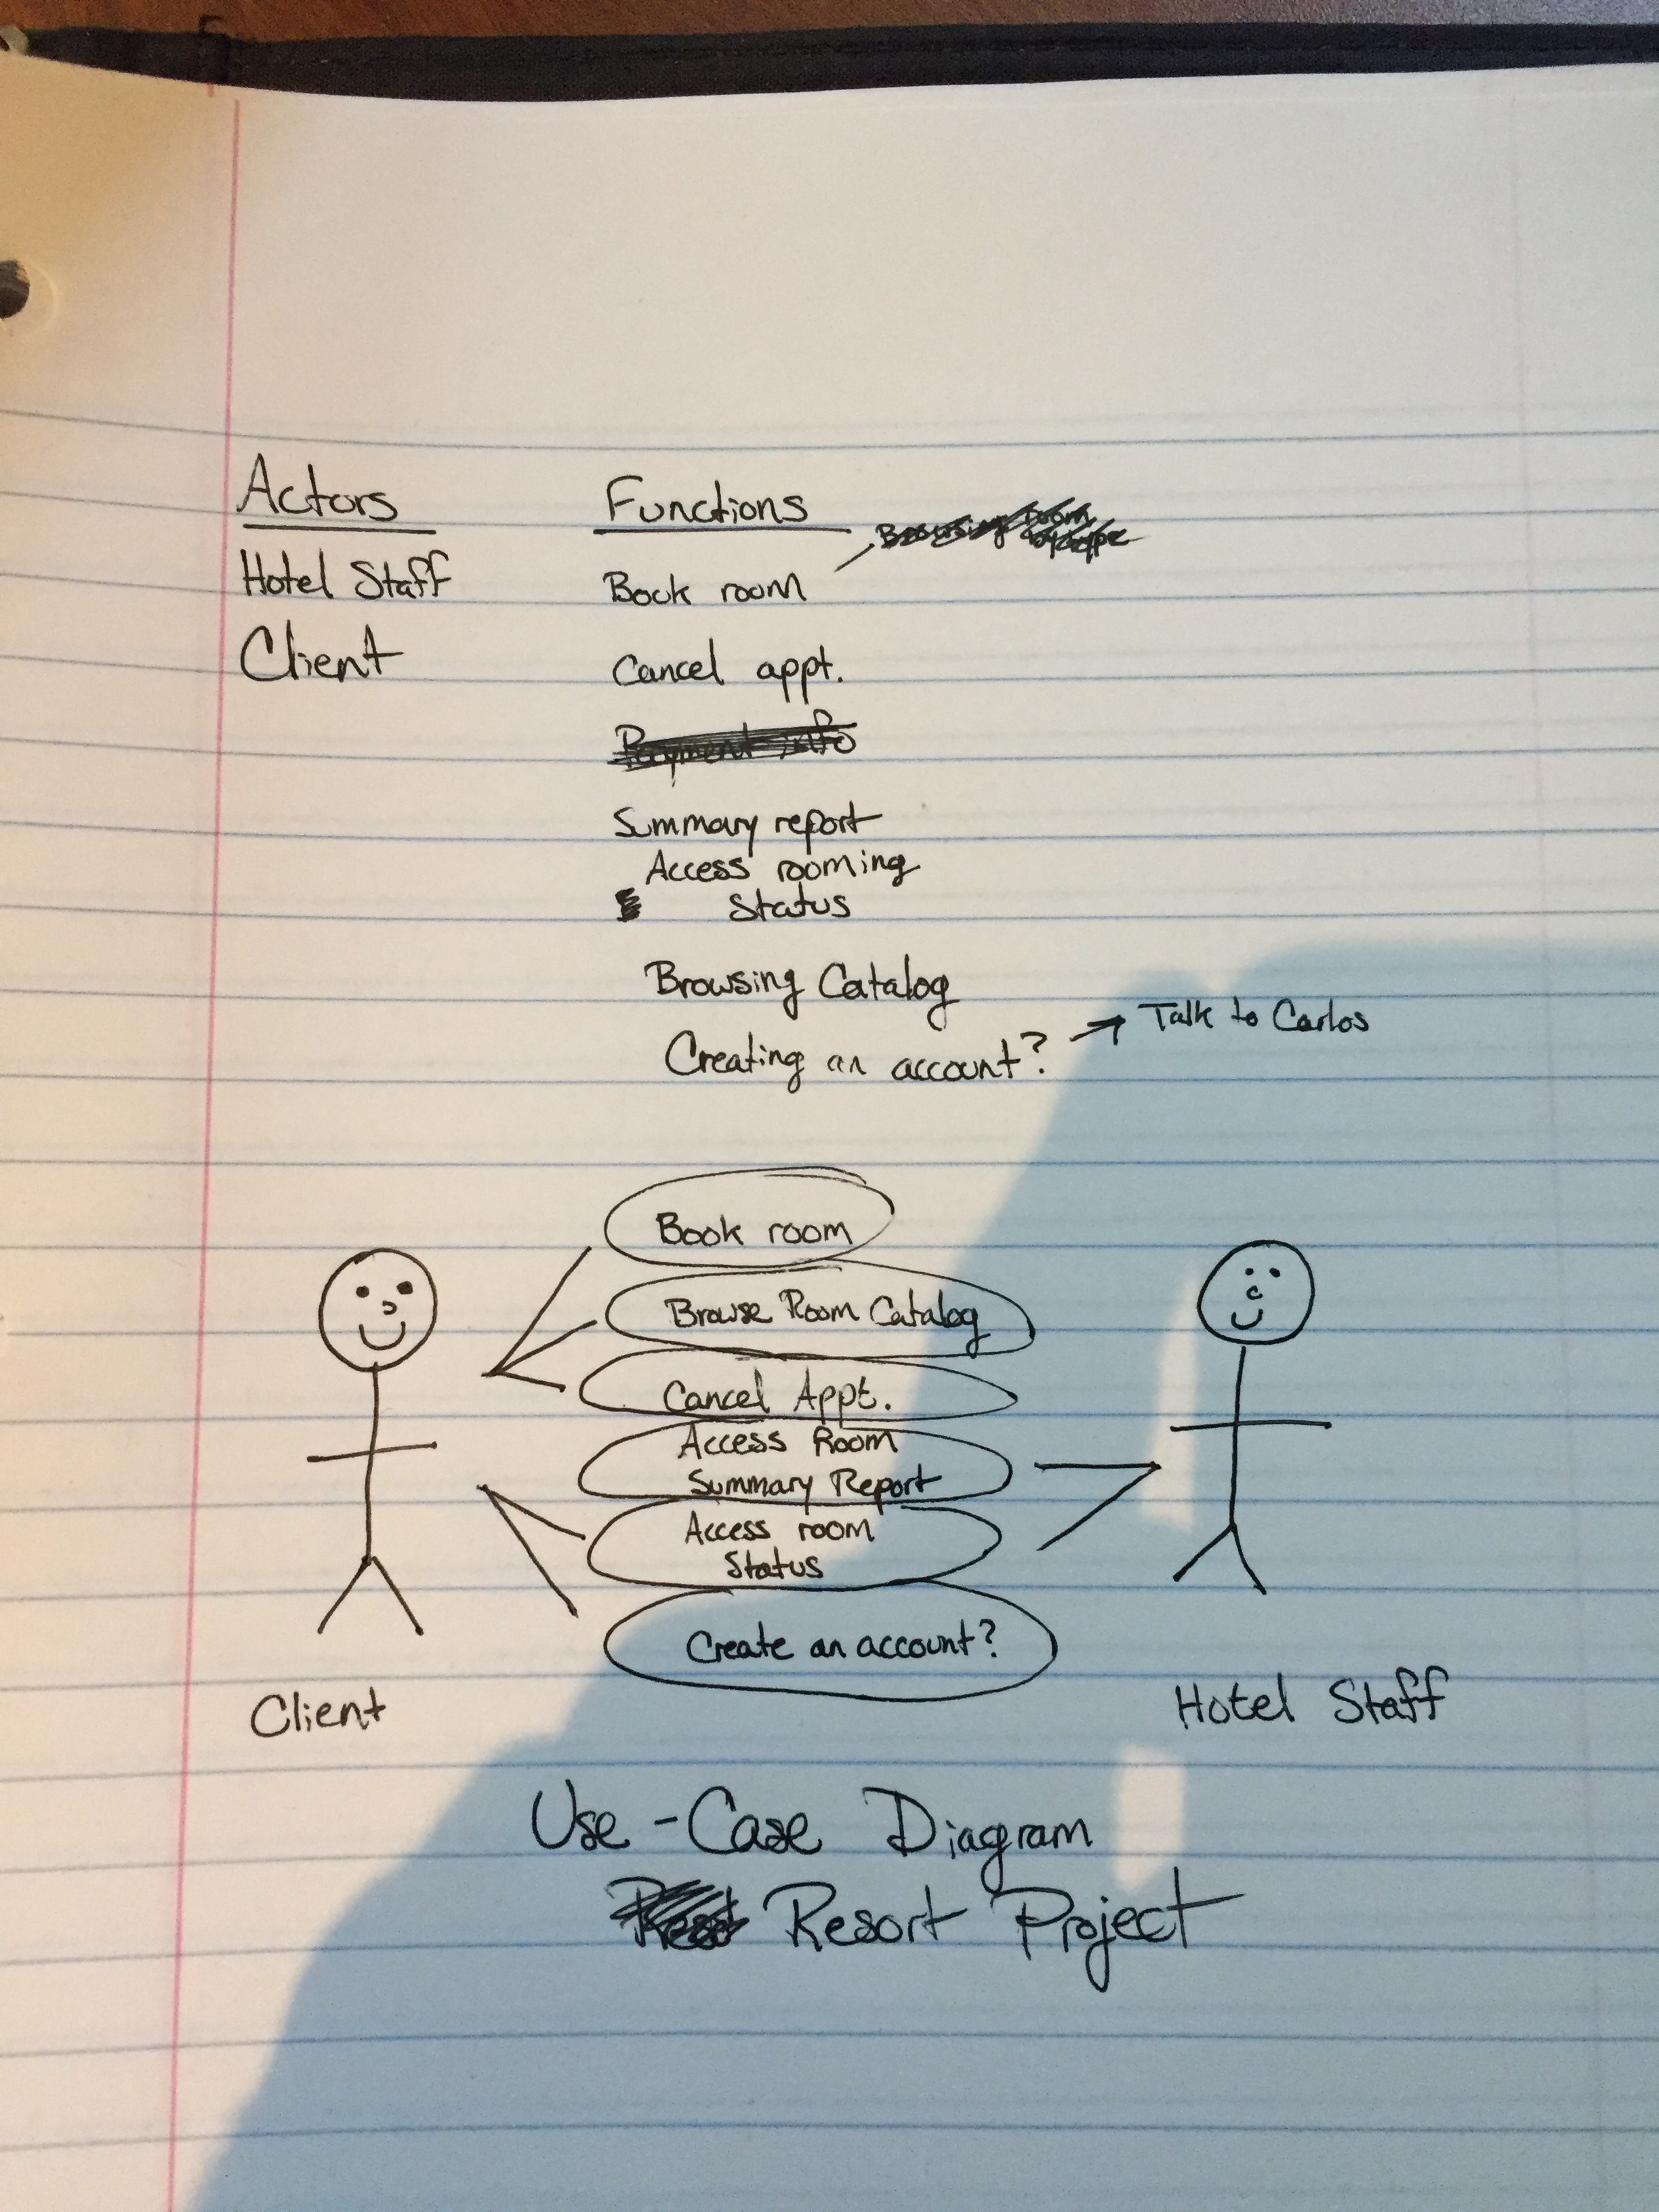 Actors
Functions
Hotel Staff
Book room
Client
Cancel appt.
Payment info
Summary report
Access rooming
Status
Browsing Catalog
Creating an account?
Talk to Carlos
Book room
Browse Room Catalog
Cancel Appt.
Access Room
Summary Report
Access room
Status
Create an account?
Client
Hotel Staff
Use-Case Diagram
Resort Project